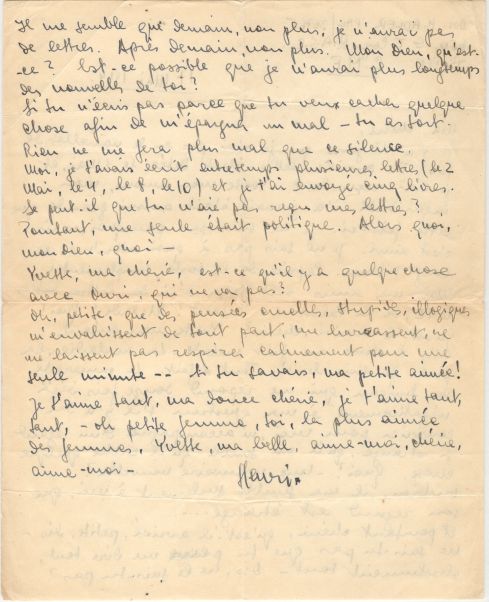 Il me semble que demain, non plus, je n'aurai pas
de lettres. Après demain, non plus. Mon dieu, qu'est-
-ce? Est-ce possible que je n'aurai plus longtemps
des nouvelles de toi?
Si tu n'écris pas parce que tu veux cacher quelque
chose afin de m'épargner un mal - tu as tort.
Rien ne me fera plus mal que ce silence.
Moi, je t'avais écrit entretemps plusieures lettres (le 2
Mai, le 4, le 8, le 10) et je t'ai envoyé cinq livres.
Se peut-il que tu n'aie pas reçu mes lettres?
Pourtant, une seule était politique. Alors quoi,
mon dieu, quoi -
Yvette, ma chérie, est-ce qu'il y a quelque chose
avec qui ne va pas?
Oh, petite, que des pensées cruelles, stupides, illogiques
m'envahissent de tout part, me harcassent, ne
me laissent pas respirer calmement pour une
seule minute -- Si tu savais, ma petite aimée!
Je t'aime tant, ma douce chérie, je t'aime tant,
tant, - oh petite femme, toi, la plus aimée
des femmes, Yvette, ma belle, aime-moi, chérie,
aime-moi -
Henri.